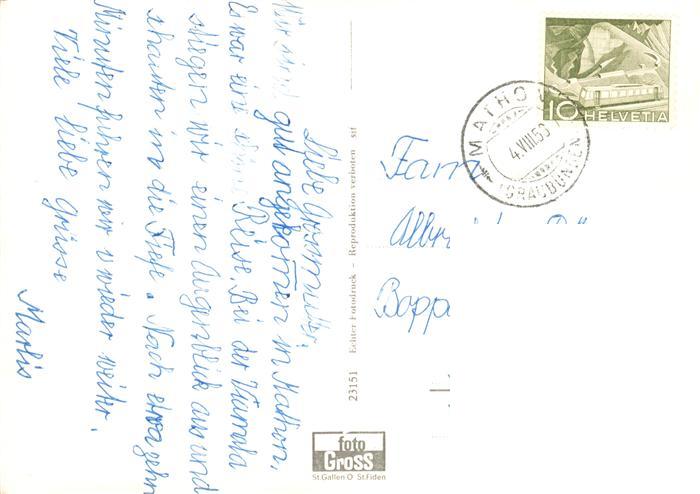 Liebe Grossmutter,
Wir sind gut angekommen in Mathon,
Es war eine schöne Reise. Bei der Viamala
stiegen wir einen Augenblick aus und
schauten in die Tiefe. Nach etwa zehn
Minuten fuhren wir wieder weiter.
Viele liebe Grüsse
Marlis
23151 Echter Fotodruck - Reproduktion verboten
foto
Gross
St.Gallen O St.Fiden
10 HELVETIA
MATHON
4.VIII.53
(GRAUBÜNDEN)
Fam
Alb
Bopp